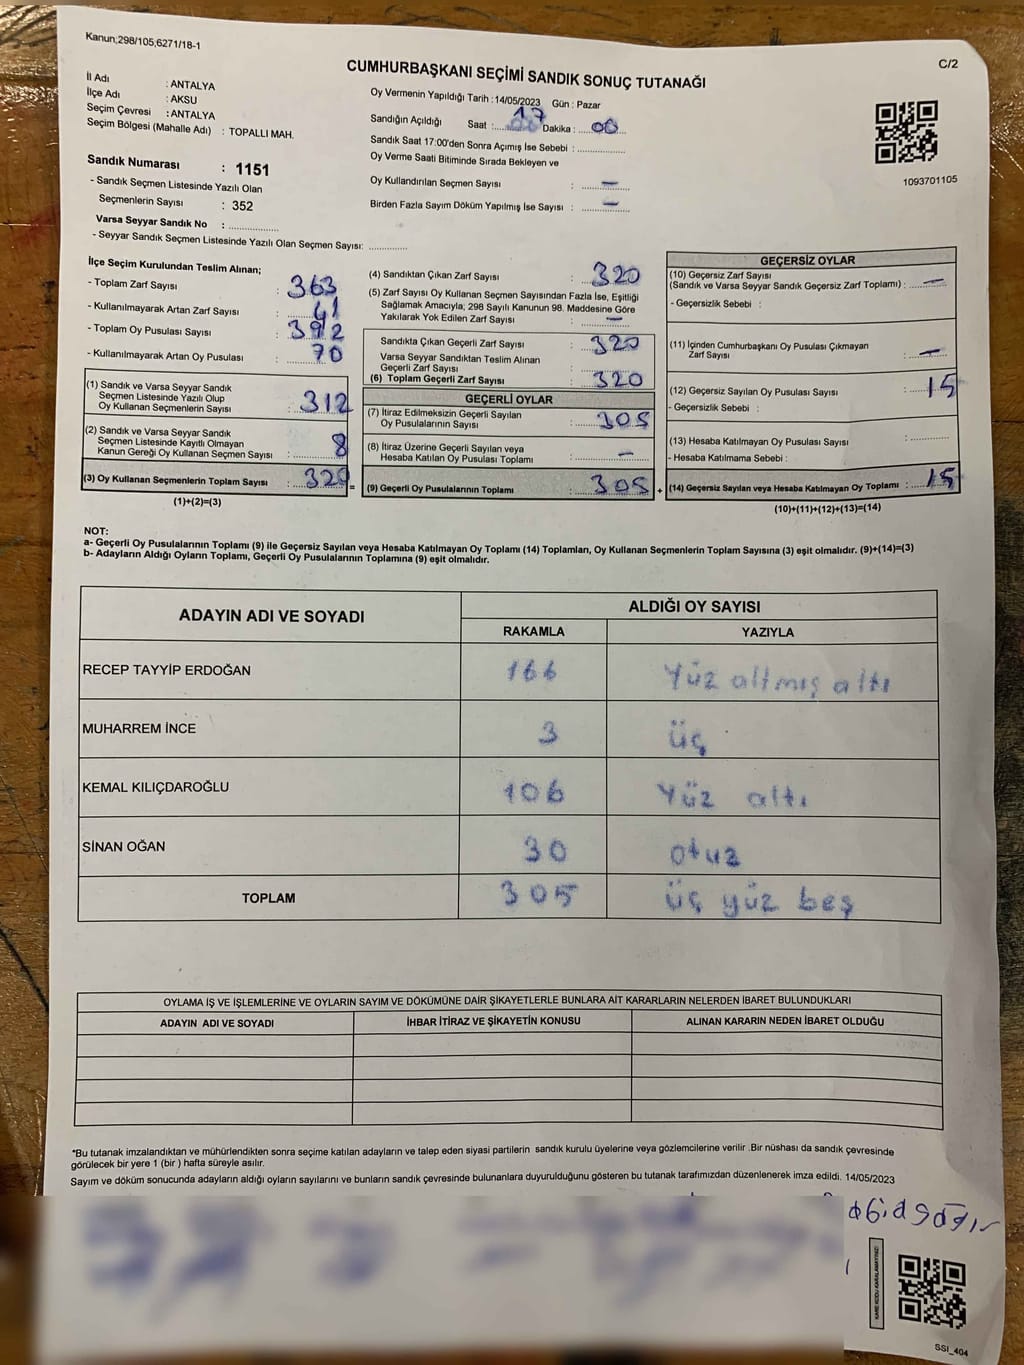 Kanun;298/105,6271/18-1
C/2
CUMHURBAŞKANI SEÇİMİ SANDIK SONUÇ TUTANAĞI
İl Adı : ANTALYA
İlçe Adı : AKSU
Seçim Çevresi : ANTALYA
Seçim Bölgesi (Mahalle Adı) : TOPALLI MAH.
Sandık Numarası : 1151
- Sandık Seçmen Listesinde Yazılı Olan
Seçmenlerin Sayısı : 352
Varsa Seyyar Sandık No : ..................
- Seyyar Sandık Seçmen Listesinde Yazılı Olan Seçmen Sayısı: ..............
Oy Vermenin Yapıldığı Tarih : 14/05/2023 Gün : Pazar
Sandığın Açıldığı Saat : 17 Dakika : 00
Sandık Saat 17:00'den Sonra Açımış İse Sebebi : ..................
Oy Verme Saati Bitiminde Sırada Bekleyen ve
Oy Kullandırılan Seçmen Sayısı : —
Birden Fazla Sayım Döküm Yapılmış İse Sayısı : —
1093701105
İlçe Seçim Kurulundan Teslim Alınan;
- Toplam Zarf Sayısı : 363
- Kullanılmayarak Artan Zarf Sayısı :
- Toplam Oy Pusulası Sayısı : 392
- Kullanılmayarak Artan Oy Pusulası : 70
(1) Sandık ve Varsa Seyyar Sandık
Seçmen Listesinde Yazılı Olup
Oy Kullanan Seçmenlerin Sayısı : 312
(2) Sandık ve Varsa Seyyar Sandık
Seçmen Listesinde Kayıtlı Olmayan
Kanun Gereği Oy Kullanan Seçmen Sayısı : 8
(3) Oy Kullanan Seçmenlerin Toplam Sayısı : 320 =
(1)+(2)=(3)
(4) Sandıktan Çıkan Zarf Sayısı : 320
(5) Zarf Sayısı Oy Kullanan Seçmen Sayısından Fazla İse, Eşitliği
Sağlamak Amacıyla; 298 Sayılı Kanunun 98. Maddesine Göre
Yakılarak Yok Edilen Zarf Sayısı : —
Sandıkta Çıkan Geçerli Zarf Sayısı : 320
Varsa Seyyar Sandıktan Teslim Alınan
Geçerli Zarf Sayısı :
(6) Toplam Geçerli Zarf Sayısı : 320
GEÇERLİ OYLAR
(7) İtiraz Edilmeksizin Geçerli Sayılan
Oy Pusulalarının Sayısı : 305
(8) İtiraz Üzerine Geçerli Sayılan veya
Hesaba Katılan Oy Pusulası Toplamı : —
(9) Geçerli Oy Pusulalarının Toplamı : 305 +
GEÇERSİZ OYLAR
(10) Geçersiz Zarf Sayısı
(Sandık ve Varsa Seyyar Sandık Geçersiz Zarf Toplamı) : —
- Geçersizlik Sebebi :
(11) İçinden Cumhurbaşkanı Oy Pusulası Çıkmayan
Zarf Sayısı : —
(12) Geçersiz Sayılan Oy Pusulası Sayısı : 15
- Geçersizlik Sebebi :
(13) Hesaba Katılmayan Oy Pusulası Sayısı : ..............
- Hesaba Katılmama Sebebi :
(14) Geçersiz Sayılan veya Hesaba Katılmayan Oy Toplamı : 15
(10)+(11)+(12)+(13)=(14)
NOT:
a- Geçerli Oy Pusulalarının Toplamı (9) ile Geçersiz Sayılan veya Hesaba Katılmayan Oy Toplamı (14) Toplamları, Oy Kullanan Seçmenlerin Toplam Sayısına (3) eşit olmalıdır. (9)+(14)=(3)
b- Adayların Aldığı Oyların Toplamı, Geçerli Oy Pusulalarının Toplamına (9) eşit olmalıdır.
ADAYIN ADI VE SOYADI
ALDIĞI OY SAYISI
RAKAMLA YAZIYLA
RECEP TAYYİP ERDOĞAN 166 Yüz altmış altı
MUHARREM İNCE 3 üç
KEMAL KILIÇDAROĞLU 106 Yüz altı
SİNAN OĞAN 30 otuz
TOPLAM 305 üç yüz beş
OYLAMA İŞ VE İŞLEMLERİNE VE OYLARIN SAYIM VE DÖKÜMÜNE DAİR ŞİKAYETLERLE BUNLARA AİT KARARLARIN NELERDEN İBARET BULUNDUKLARI
ADAYIN ADI VE SOYADI İHBAR İTİRAZ VE ŞİKAYETİN KONUSU ALINAN KARARIN NEDEN İBARET OLDUĞU
*Bu tutanak imzalandıktan ve mühürlendikten sonra seçime katılan adayların ve talep eden siyasi partilerin sandık kurulu üyelerine veya gözlemcilerine verilir .Bir nüshası da sandık çevresinde
görülecek bir yere 1 (bir ) hafta süreyle asılır.
Sayım ve döküm sonucunda adayların aldığı oyların sayılarını ve bunların sandık çevresinde bulunanlara duyurulduğunu gösteren bu tutanak tarafımızdan düzenlenerek imza edildi. 14/05/2023
KARE KODU KARALAMAYINIZ!
SSI_404